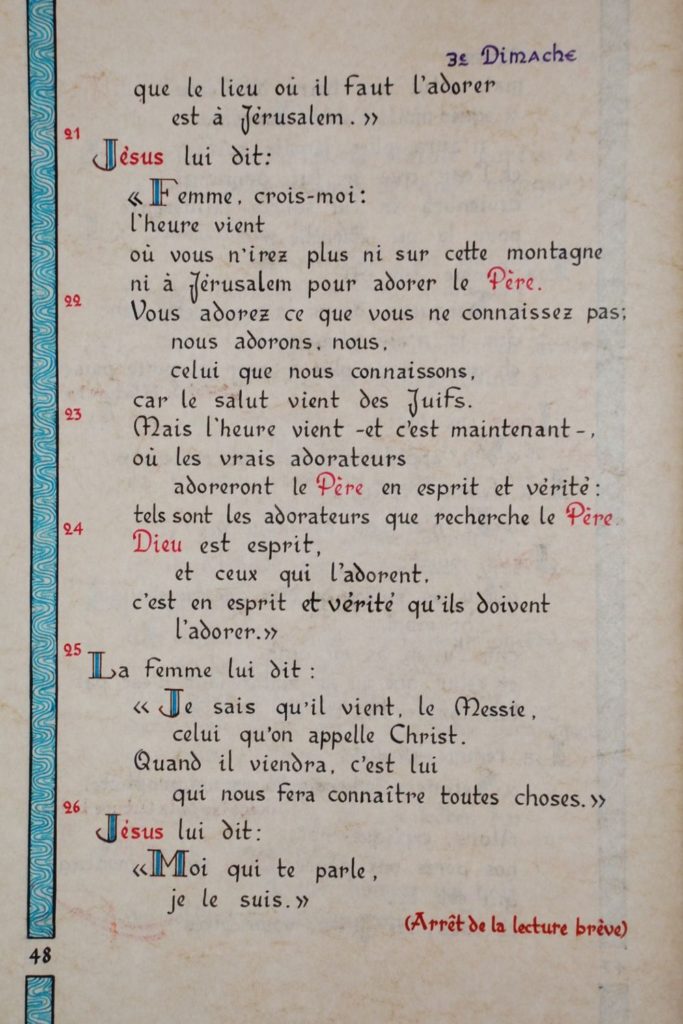 3e Dimache
que le lieu où il faut l'adorer
est à Jérusalem. »
21
Jésus lui dit:
« Femme, crois-moi:
l'heure vient
où vous n'irez plus ni sur cette montagne
ni à Jérusalem pour adorer le Père.
22
Vous adorez ce que vous ne connaissez pas;
nous adorons, nous,
celui que nous connaissons,
car le salut vient des Juifs.
23
Mais l'heure vient -et c'est maintenant-,
où les vrais adorateurs
adoreront le Père en esprit et vérité:
tels sont les adorateurs que recherche le Père.
24
Dieu est esprit,
et ceux qui l'adorent,
c'est en esprit et vérité qu'ils doivent
l'adorer.»
25
La femme lui dit:
« Je sais qu'il vient, le Messie,
celui qu'on appelle Christ.
Quand il viendra, c'est lui
qui nous fera connaître toutes choses.»
26
Jésus lui dit:
«Moi qui te parle,
je le suis.»
(Arrêt de la lecture brève)
48